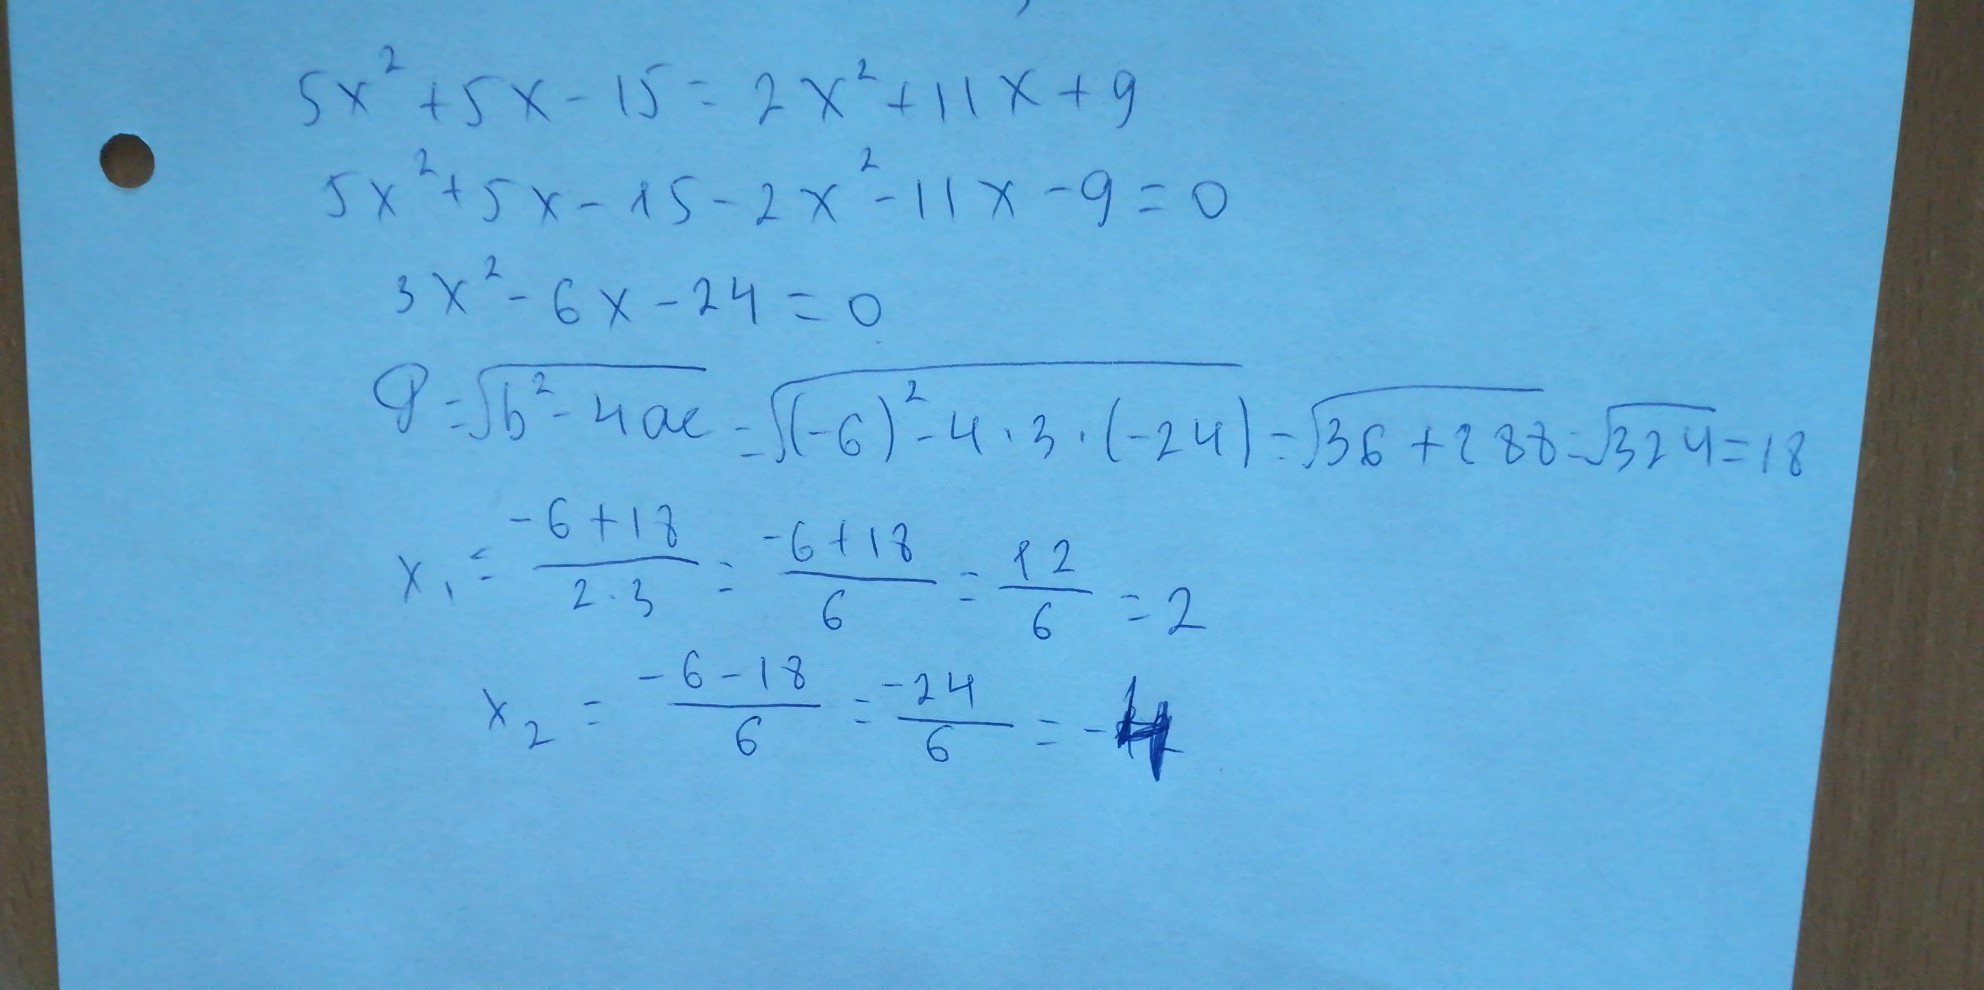 5x²+5x-15=2x²+11x+9
5x²+5x-15-2x²-11x-9=0
3x²-6x-24=0
D=√b²-4ac=√(-6)²-4·3·(-24)=√36+288=√324=18
x₁=-6+18/2·3=-6+18/6=12/6=2
x₂=-6-18/6=-24/6=-4